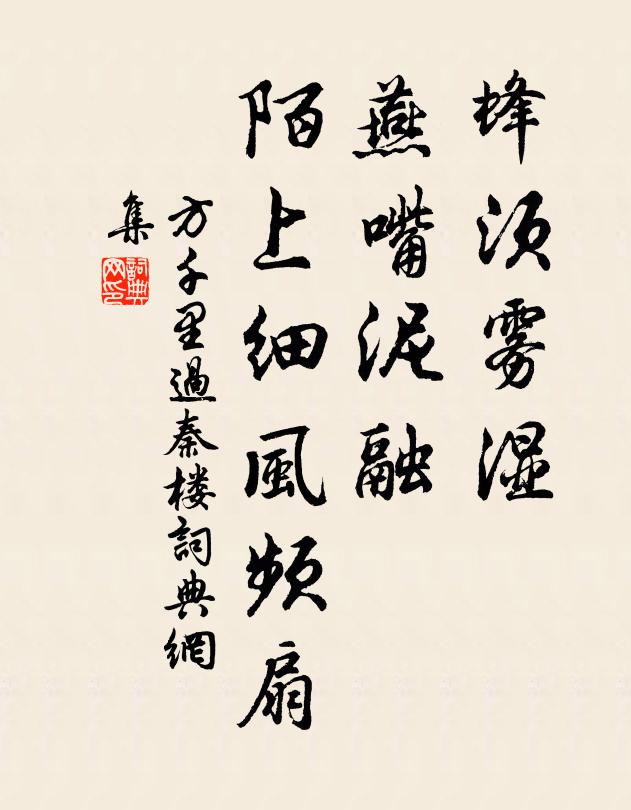 蜂须雾湿
燕嘴泥融
陌上细風频扇
方千里過秦楼詞典網
集
詞典
网印